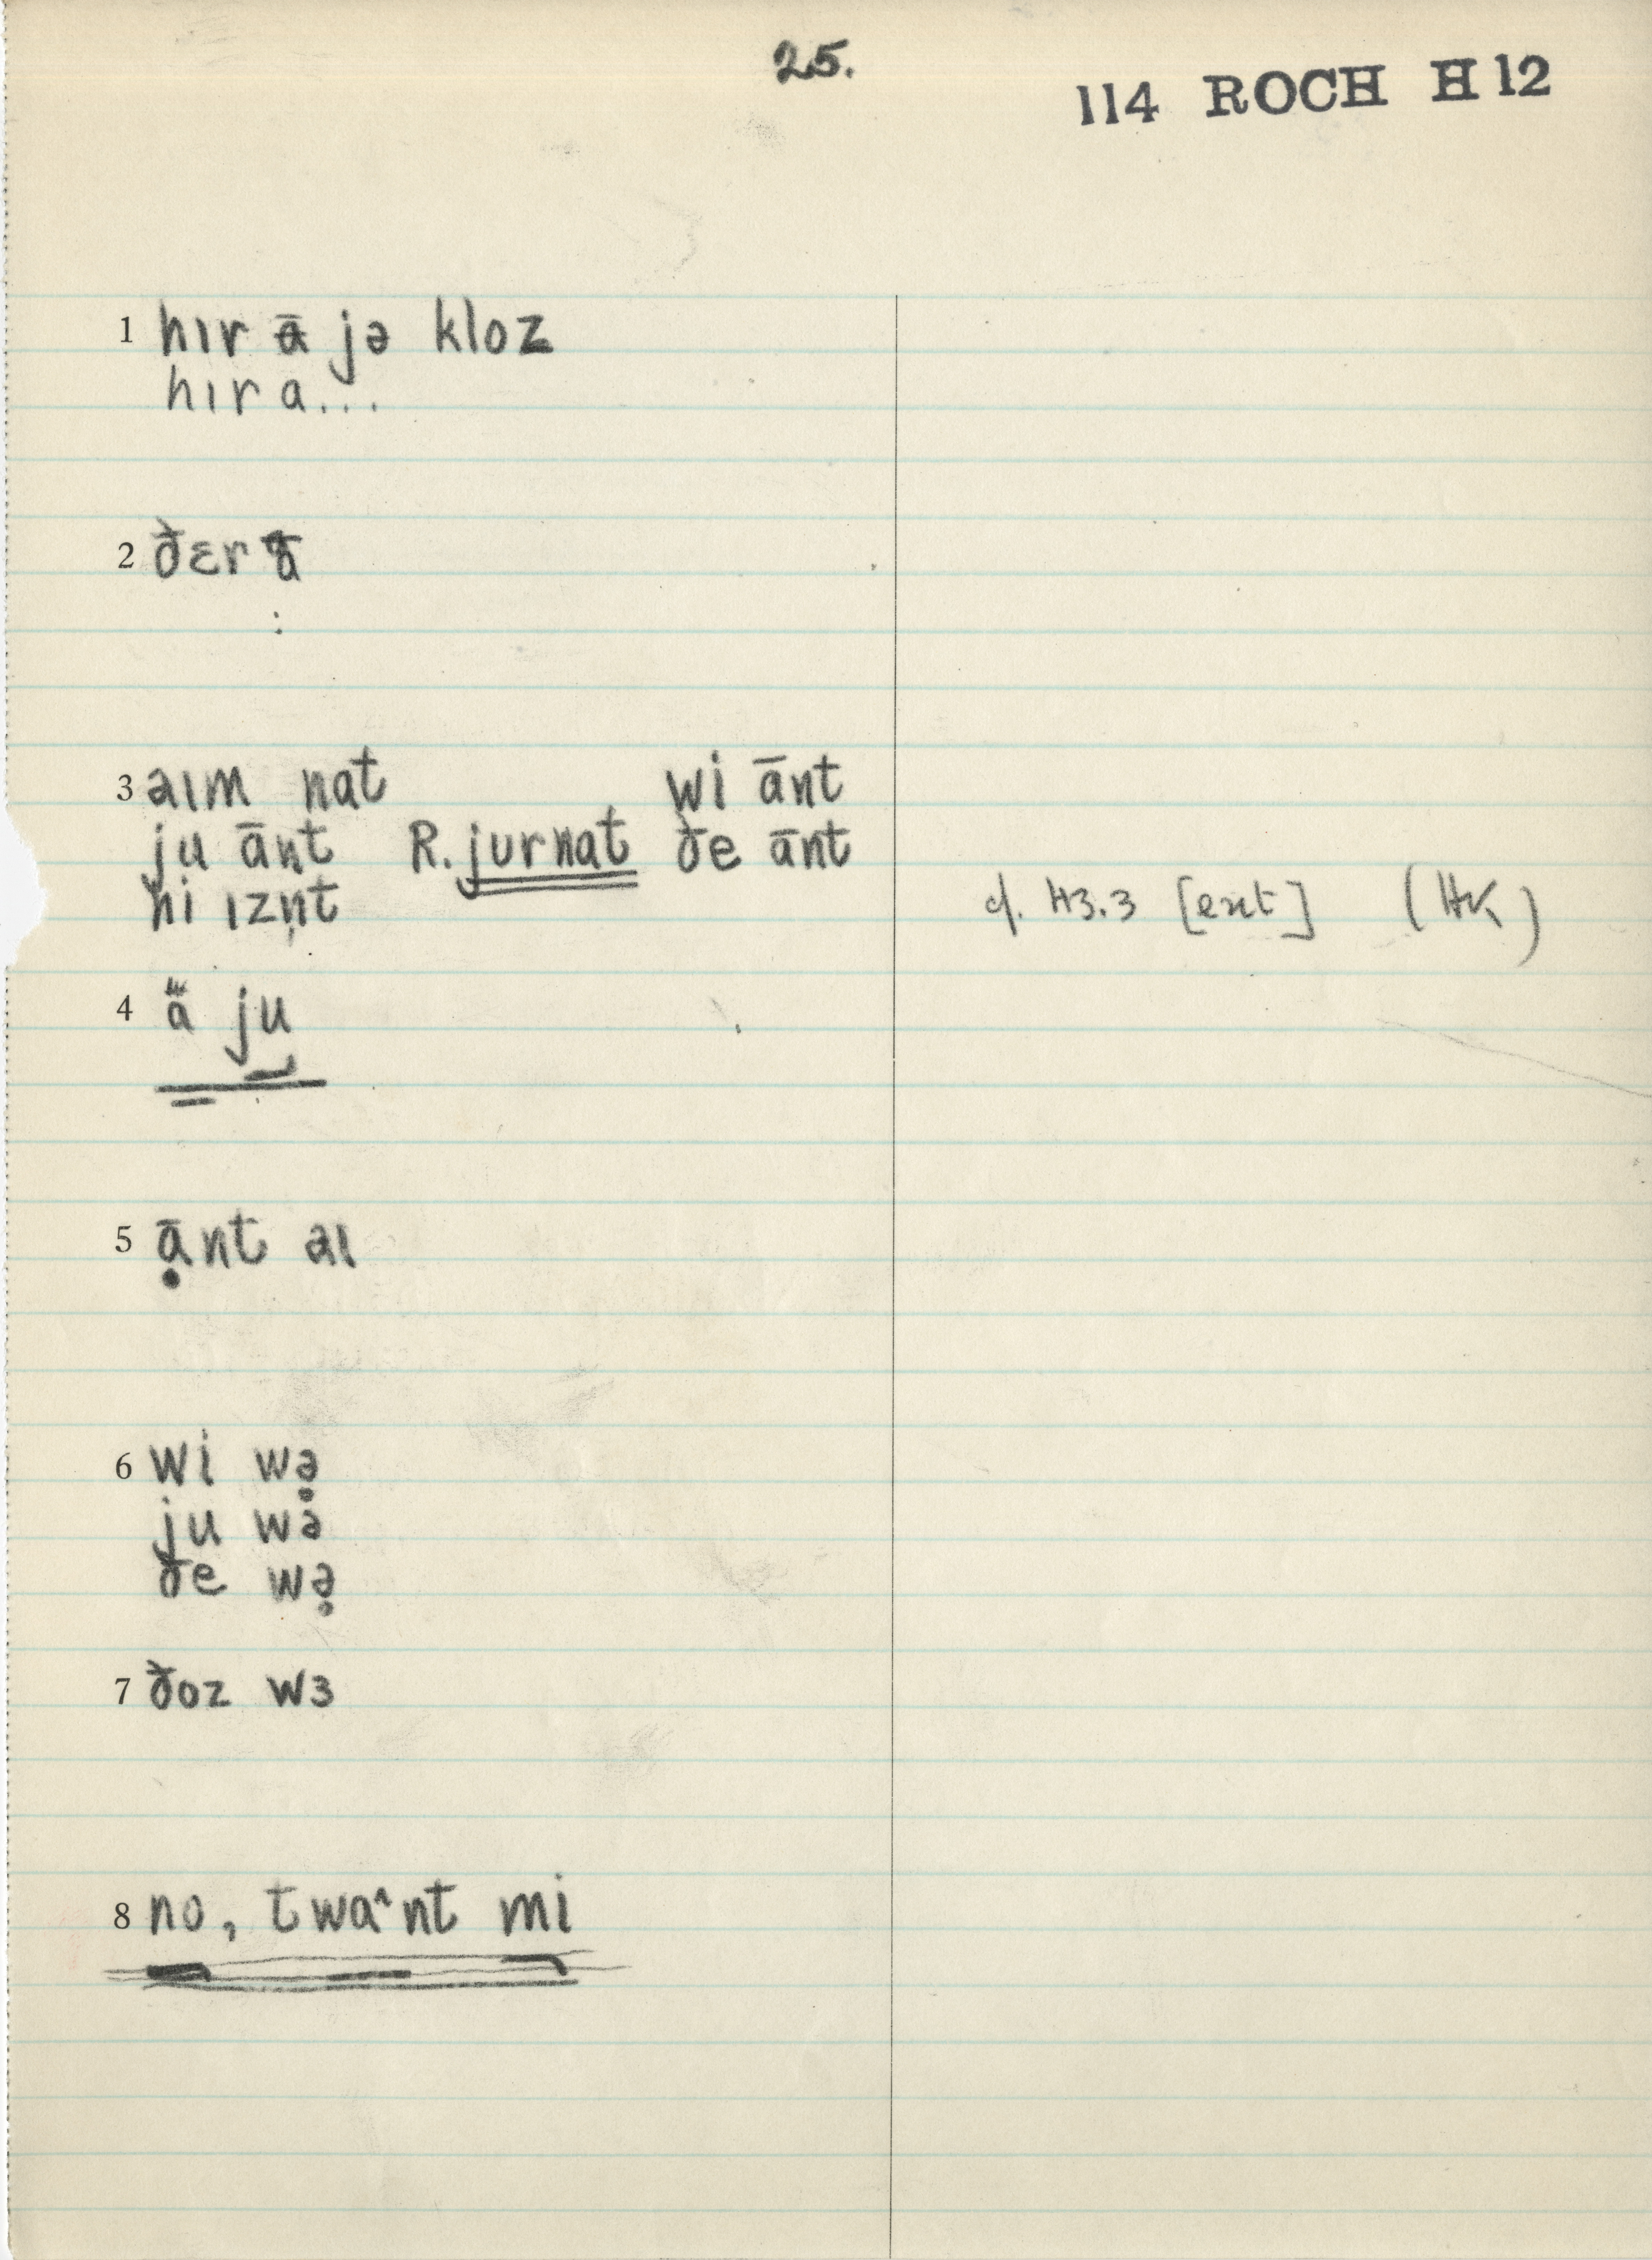 25.
114 ROCH H 12
1 hır ā jə kloz
hır a...
2 ðɛr ā
:
3 aım nat wi ānt
ju ānt R. jurnat ðe ānt
hi ızn̩t cf. H3.3 [ent] (HK)
4 ä ju
5 ạ̄nt aı
6 wi wə̣
ju wə
ðe wə̣
7 ðoz wɜ
8 no, twa^nt mi